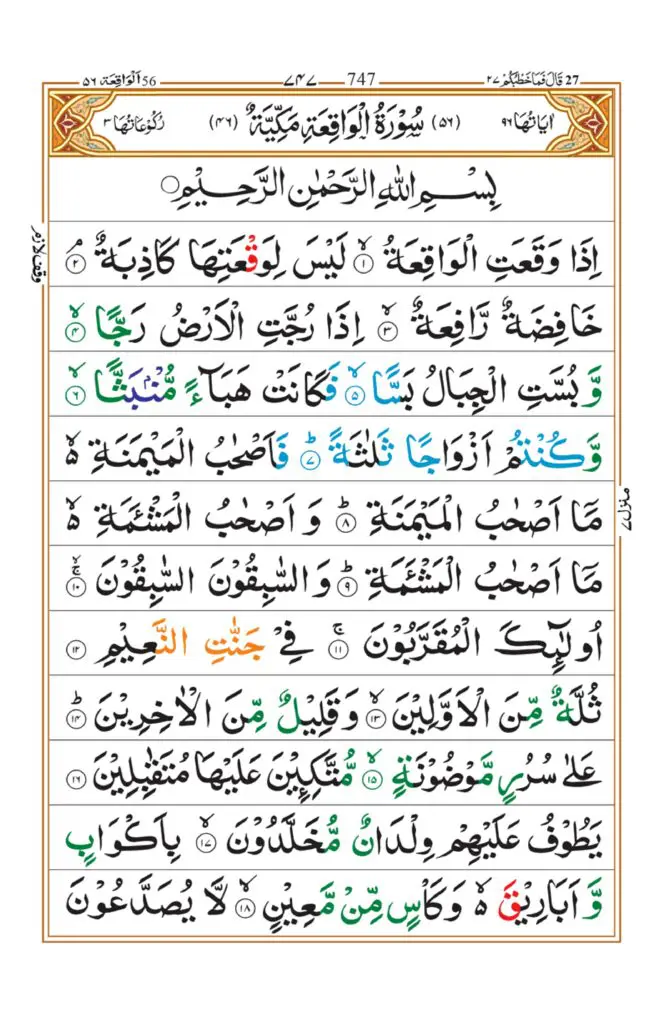 27 قَالَ فَمَا خَطْبُكُمْ ۲۷ 747 ۷۴۷ 56 اَلْوَاقِعَة ۵۶
اٰيَاتُهَا ۹۶ (۵۶) سُوْرَةُ الْوَاقِعَةِ مَكِّيَّةٌ (۴۶) رُكُوْعَاتُهَا ۳
بِسْمِ اللّٰهِ الرَّحْمٰنِ الرَّحِيْمِ
اِذَا وَقَعَتِ الْوَاقِعَةُ ۙ۱ لَيْسَ لِوَقْعَتِهَا كَاذِبَةٌ ۘ۲
وقف لازم
خَافِضَةٌ رَّافِعَةٌ ۙ۳ اِذَا رُجَّتِ الْاَرْضُ رَجًّا ۙ۴
وَّ بُسَّتِ الْجِبَالُ بَسًّا ۙ۵ فَكَانَتْ هَبَآءً مُّنْۢبَثًّا ۙ۶
وَّكُنْتُمْ اَزْوَاجًا ثَلٰثَةً ؕ۷ فَاَصْحٰبُ الْمَيْمَنَةِ ۙ۬
مَاۤ اَصْحٰبُ الْمَيْمَنَةِ ؕ۸ وَ اَصْحٰبُ الْمَشْـَٔمَةِ ۙ۬
منزل ۷
مَاۤ اَصْحٰبُ الْمَشْـَٔمَةِ ؕ۹ وَ السّٰبِقُوْنَ السّٰبِقُوْنَ ۚۙ۱۰
اُولٰٓئِكَ الْمُقَرَّبُوْنَ ۚ۱۱ فِيْ جَنّٰتِ النَّعِيْمِ ۱۲
ثُلَّةٌ مِّنَ الْاَوَّلِيْنَ ۙ۱۳ وَ قَلِيْلٌ مِّنَ الْاٰخِرِيْنَ ؕ۱۴
عَلٰى سُرُرٍ مَّوْضُوْنَةٍ ۙ۱۵ مُّتَّكِـِٕيْنَ عَلَيْهَا مُتَقٰبِلِيْنَ ۱۶
يَطُوْفُ عَلَيْهِمْ وِلْدَانٌ مُّخَلَّدُوْنَ ۙ۱۷ بِاَكْوَابٍ
وَّ اَبَارِيْقَ ۙ۬ وَ كَاْسٍ مِّنْ مَّعِيْنٍ ۙ۱۸ لَّا يُصَدَّعُوْنَ